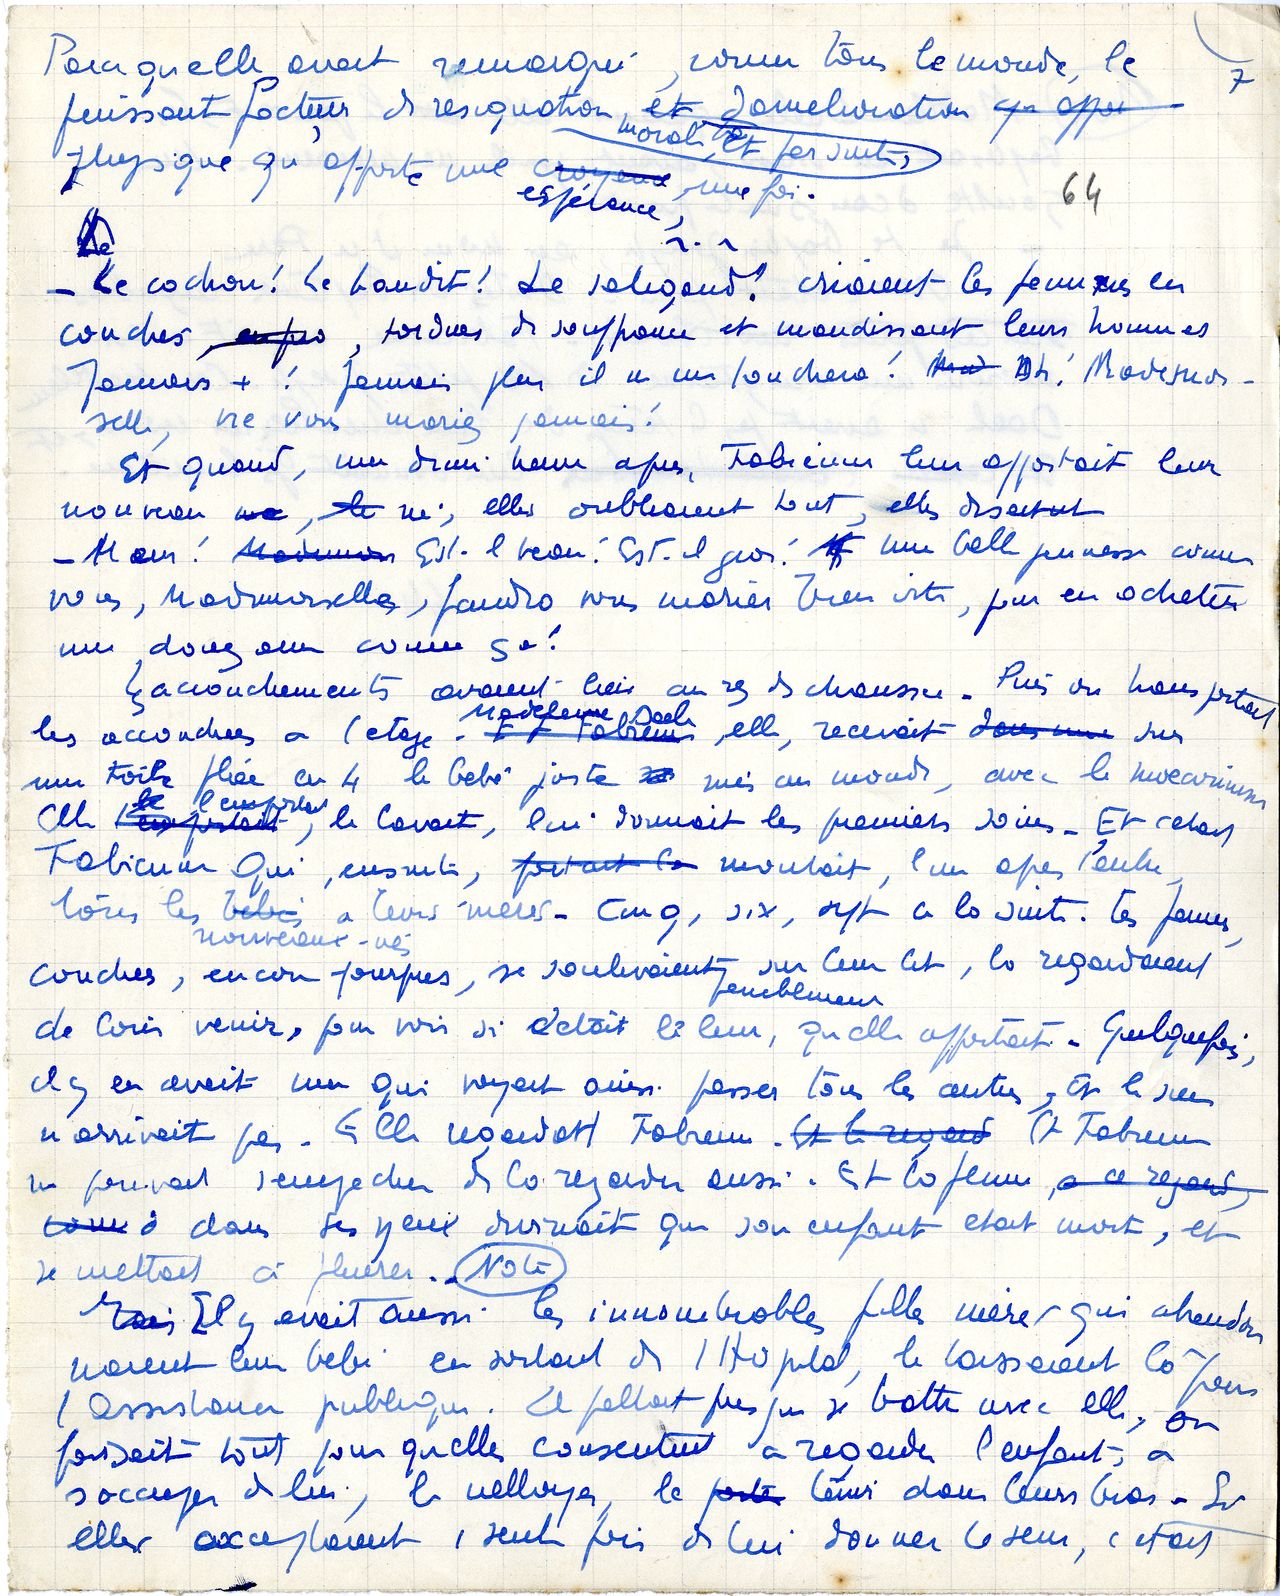 7
Parcequ'elle avait remarqué, comme tous le monde, le
puissant facteur de resignation et d'amelioration qu'appor
morale, et par suite,
physique qu'apporte une croyance, une foi.
espérance,
64
Le
– Le cochon! Le bandit! Le saligaud! criaient les femmes en
couches, tordues de souffrance et maudissant leurs hommes
Jamais + ! Jamais plus il ne me touchera! Ah! Mademoi-
selle, ne vous mariez jamais!
Et quand, une demi heure apres, Fabienne leur apportait leur
nouveau né, elles oubliaient tout, elles disaient
– Est-il beau! Est-il gros! une belle jeunesse comme
vous, Mademoiselle, faudra vous marier bien vite, pour en acheter
une douzaine comme ça!
Les accouchements avaient lieu au rez de chaussée. Puis on transportait
les accouchées a l'etage. Et Fabienne, elle, recevait dans une sur
Madeleine Daele
une toile pliée en 4 le bébé juste mis au monde, avec le mecanisme
Elle l'emportait, le lavait, lui donnait les premiers soins. Et c'etait
Fabienne qui, ensuite, portait la montait, l'un apres l'autre,
tous les bébés a leurs mères. Cinq, six, sept a la suite. Les femmes,
nouveaux-nés
couchées, encore, se soulevaient sur leur lit, la regardaient
peniblement
de loin venir, pour voir si c'etait le leur, qu'elle apportait. Quelquefois,
il y en avait une qui voyait ainsi passer tous les autres, Et le sien
n'arrivait pas. Elle regardait Fabienne. Et le regard Et Fabienne
ne pouvait s'empecher de la regarder aussi. Et la femme, a ce regard,
dans ses yeux devinait que son enfant etait mort, et
se mettait à pleurer.. Note
Mais Il y avait aussi les innombrables filles mères qui abandon
naient leur bébé en sortant de l'Hopital, le laissaient là pour
l'assistance publique. Il fallait presque se battre avec elle, on
faisait tout pour qu'elles consentent a regarder l'enfant, a
s'occuper de lui, le nettoyer, le porter tenir dans leurs bras. Si
elles acceptaient 1 seule fois de lui donner le sein, c'etait